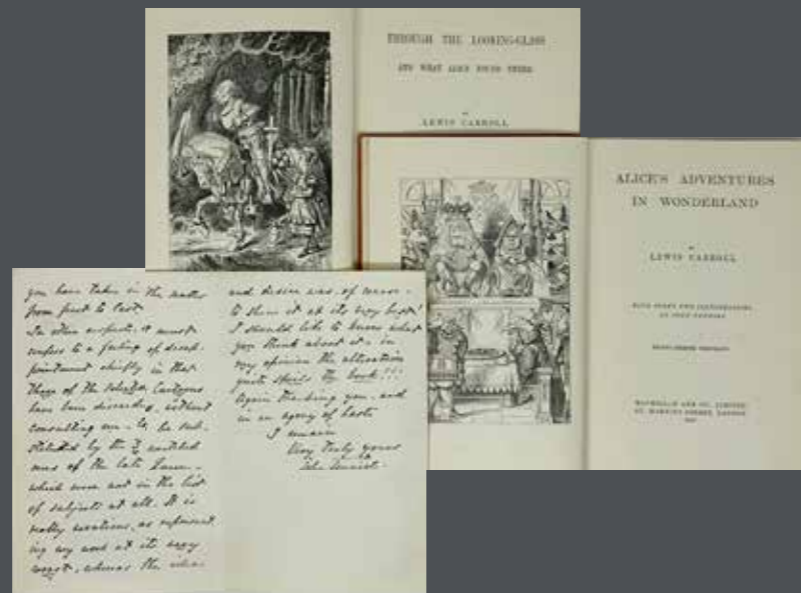 THROUGH THE LOOKING-GLASS
AND WHAT ALICE FOUND THERE
BY
LEWIS CARROLL
ALICE'S ADVENTURES
IN WONDERLAND
BY
LEWIS CARROLL
MACMILLAN AND CO., LIMITED
ST. MARTIN'S STREET, LONDON
you have taken in the matter
from first to last.
In other respects, I must
confess to a feeling of disap-
pointment chiefly in that
three of the selected Cartoons
have been discarded, without
consulting me - to be sub-
stituted by the
ones of the late
which were not in the list
of subjects at all. It is
really vexatious, as represent
ing my work at its very
worst, whereas the idea
and desire was, of course -
to show it at its very best!
I should like to know what
you think about it - in
my opinion the alteration
quite spoils the book!!!
Again thanking you, and
in an agony of haste
I remain
Very truly yours
John Tenniel